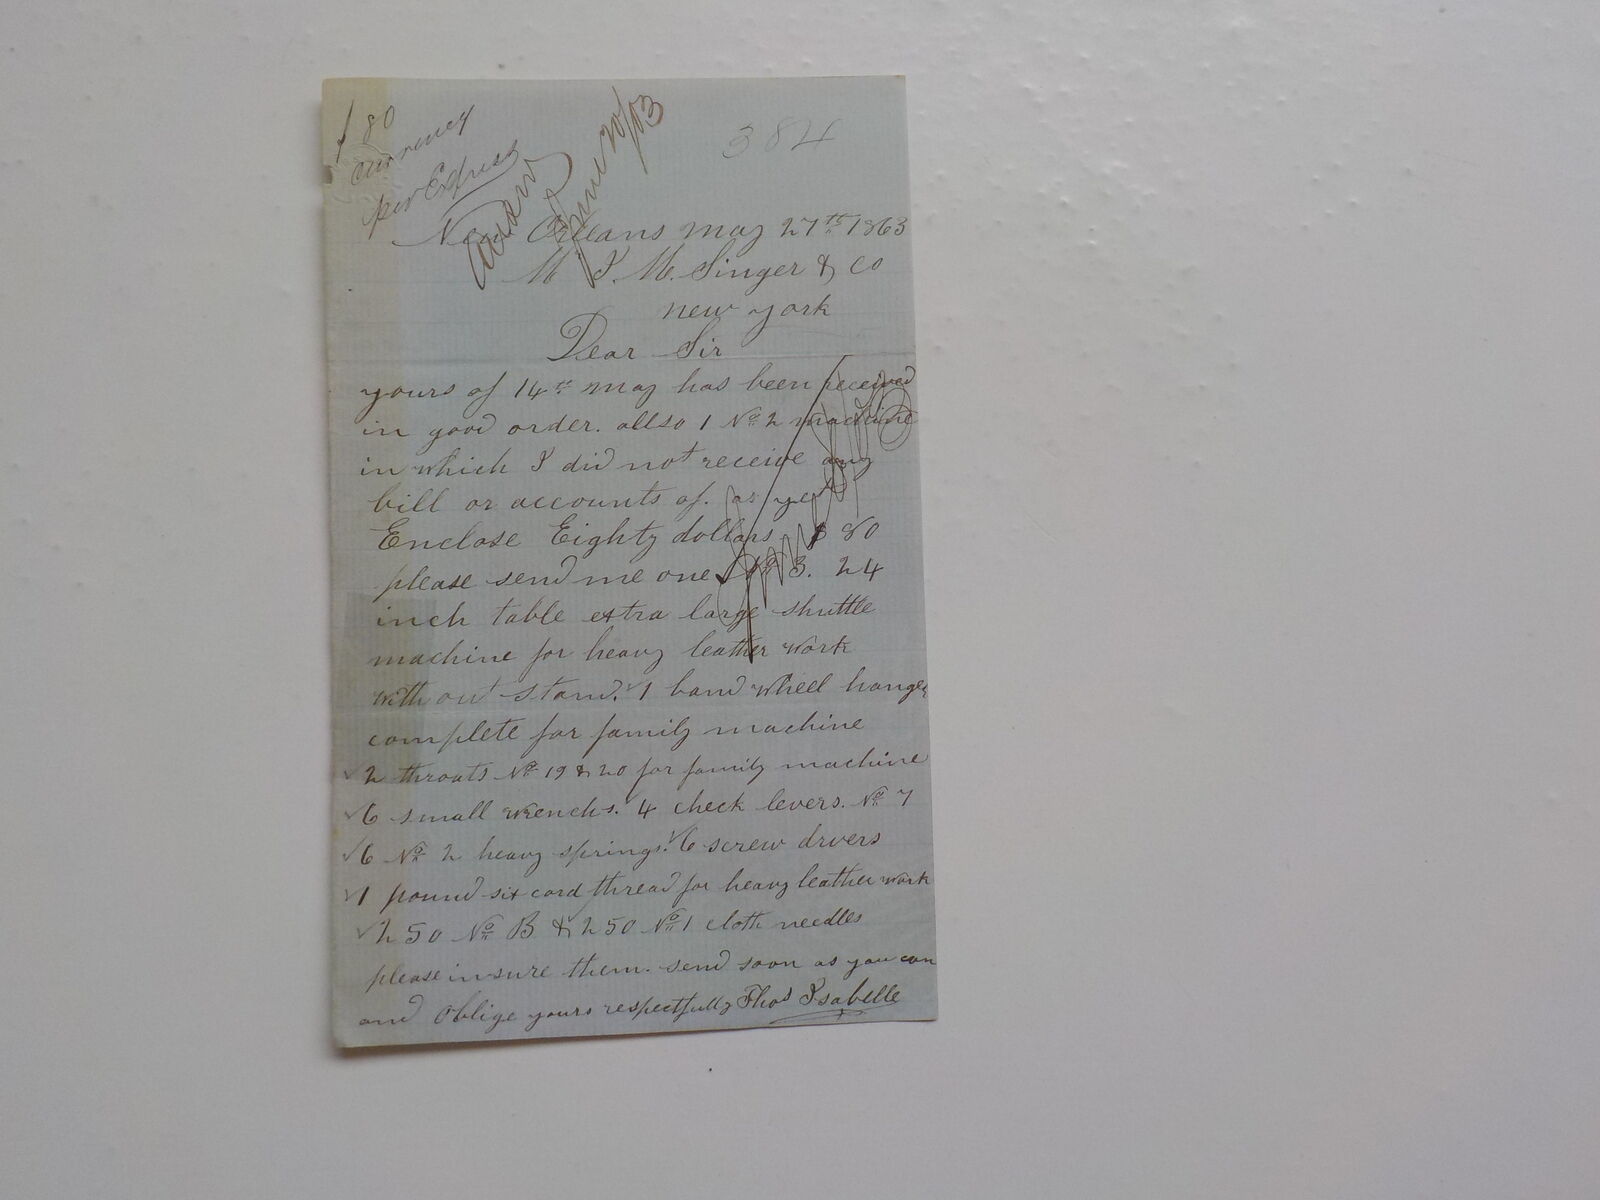 $ 80
Currency
per Express
June 20/63
384
New Orleans may 27th 1863
M I. M. Singer & Co
new york
Dear Sir
yours of 14th may has been received
in good order. allso 1 No 2 machine
in which I did not receive any
bill or accounts of. as yet
Enclose Eighty dollars $ 80
please send me one No 3. 24
inch table extra large shuttle
machine for heavy leather work
with out stand. 1 band wheel hanger
complete for family machine
2 throats No 19 & 20 for family machine
6 small wrenchs. 4 check levers. No 7
6 No 2 heavy springs. 6 screw drvers
1 pound six cord thread for heavy leather work
250 No B & 250 No 1 cloth needles
please insure them. send soon as you can
and Oblige yours respectfully Thos Isabelle